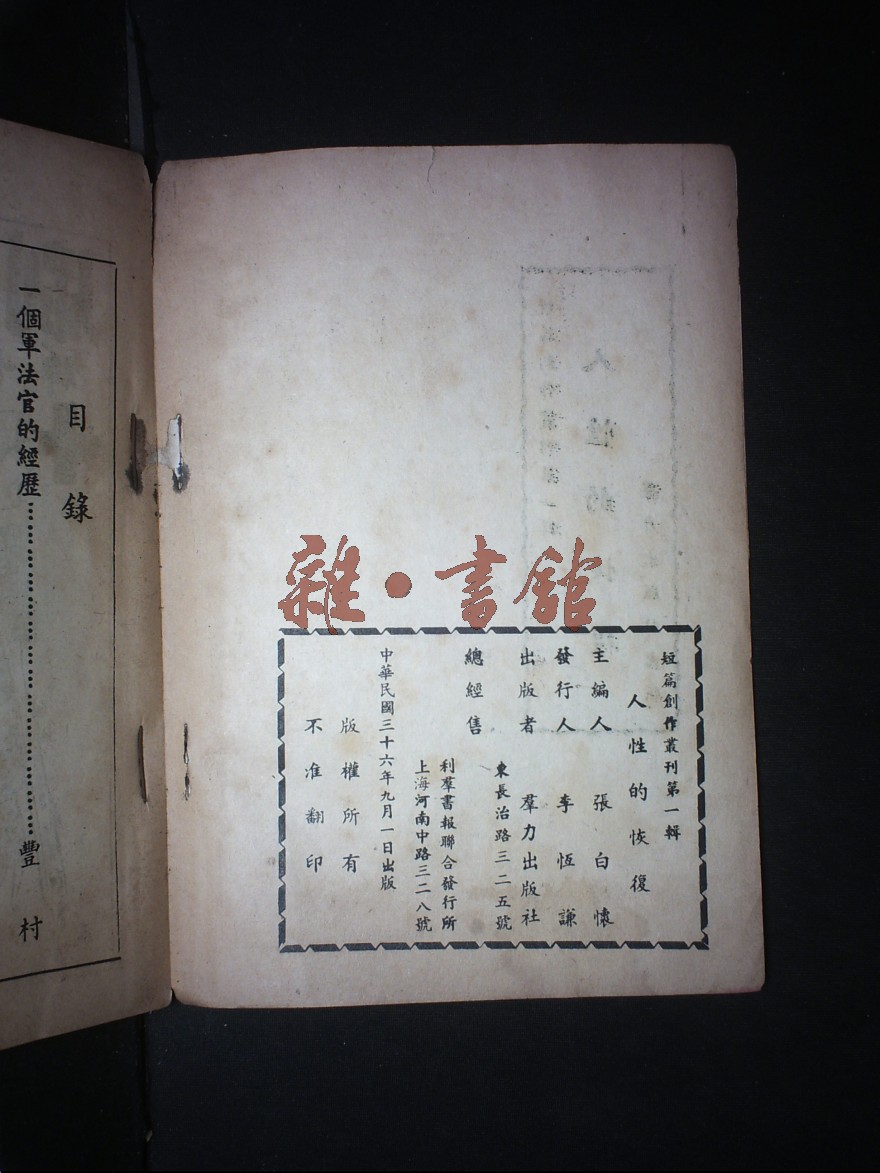 短篇創作叢刊第一輯
人性的恢復
主編人 張白懷
發行人 李恆謙
出版者 羣力出版社
東長治路三二五號
總經售
利羣書報聯合發行所
上海河南中路三二八號
中華民國三十六年九月一日出版
版權所有
不准翻印
目錄
一個軍法官的經歷……………………豐村
雜·書館